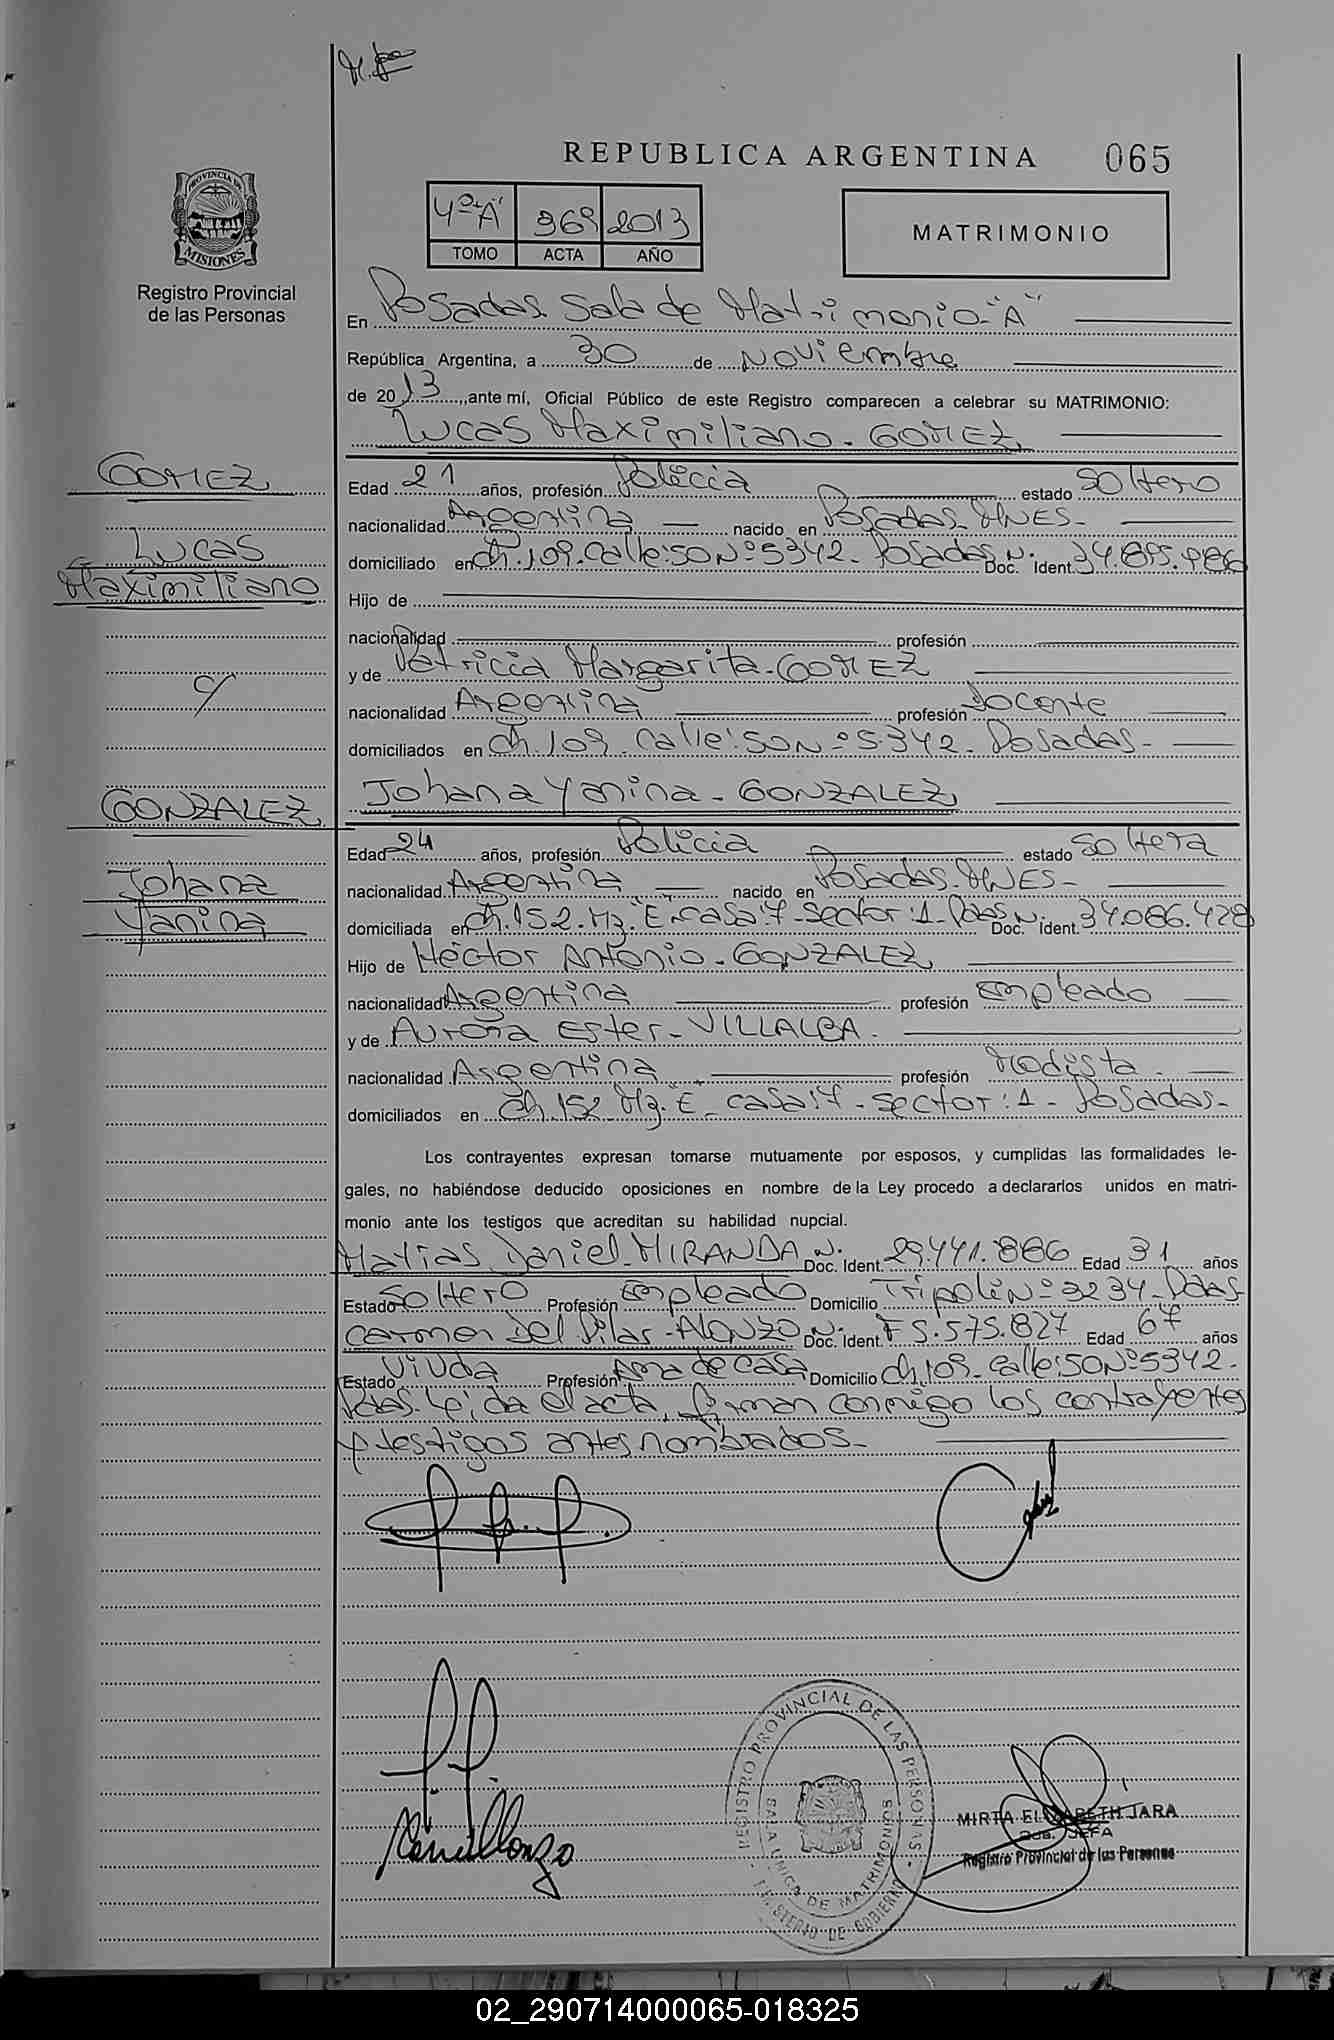 REPUBLICA ARGENTINA 065
PROVINCIA DE MISIONES
Registro Provincial
de las Personas
4º "A" 369 2013
TOMO ACTA AÑO
MATRIMONIO
En Posadas Sala de Matrimonio "A"
República Argentina, a 30 de Noviembre
de 2013, ante mí, Oficial Público de este Registro comparecen a celebrar su MATRIMONIO:
Lucas Maximiliano - GOMEZ
GOMEZ
Lucas
Maximiliano
c/
GONZALEZ
Johana
Yanina
Edad 21 años, profesión Policia estado Soltero
nacionalidad Argentina nacido en Posadas - MNES -
domiciliado en Ch. 109. Calle: 50 Nº 5342 - Posadas Doc. Ident. N: 34.895.986
Hijo de
nacionalidad profesión
y de Patricia Margarita - GOMEZ
nacionalidad Argentina profesión Docente
domiciliados en Ch. 109 - Calle: 50 Nº 5342 - Posadas -
Johana Yanina - GONZALEZ
Edad 24 años, profesión Policia estado Soltera
nacionalidad Argentina nacido en Posadas - MNES -
domiciliada en Ch. 152. Mz. "E" - casa: 7 - Sector: 1 - Pdas Doc. Ident. N: 34.086.428
Hijo de Héctor Antonio - GONZALEZ
nacionalidad Argentina profesión Empleado
y de Aurora Ester - VILLALBA.
nacionalidad Argentina profesión Modista.
domiciliados en Ch. 152 Mz. "E" - casa: 7 - Sector: 1 - Posadas -
Los contrayentes expresan tomarse mutuamente por esposos, y cumplidas las formalidades le-
gales, no habiéndose deducido oposiciones en nombre de la Ley procedo a declararlos unidos en matri-
monio ante los testigos que acreditan su habilidad nupcial.
Matias Daniel - MIRANDA Doc. Ident. N: 29.441.886 Edad 31 años
Estado Soltero Profesión Empleado Domicilio Tripoli Nº 3234 - Pdas -
Carmen Del Pilar - ALONZO Doc. Ident. N: F 5.575.827 Edad 67 años
Estado Viuda Profesión Ama de casa Domicilio Ch. 109 - Calle: 50 Nº 5342 -
Pdas. Leída el acta, firman conmigo los contrayentes
y testigos antes nombrados -
REGISTRO PROVINCIAL DE LAS PERSONAS
SALA UNICA DE MATRIMONIOS
MINISTERIO DE GOBIERNO
MIRTA ELIZABETH JARA
Sub. JEFA
Registro Provincial de las Personas
02_290714000065-018325